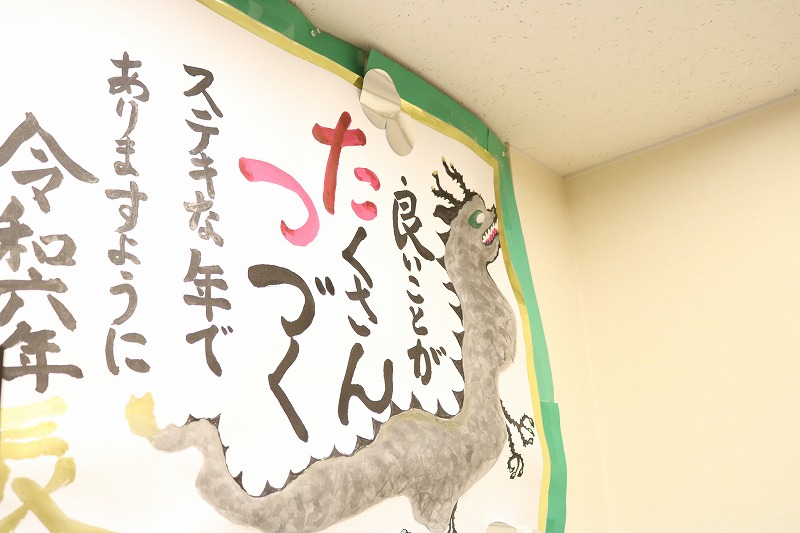 良いことが
たくさん
つづく
ステキな年で
ありますように
令和六年
辰